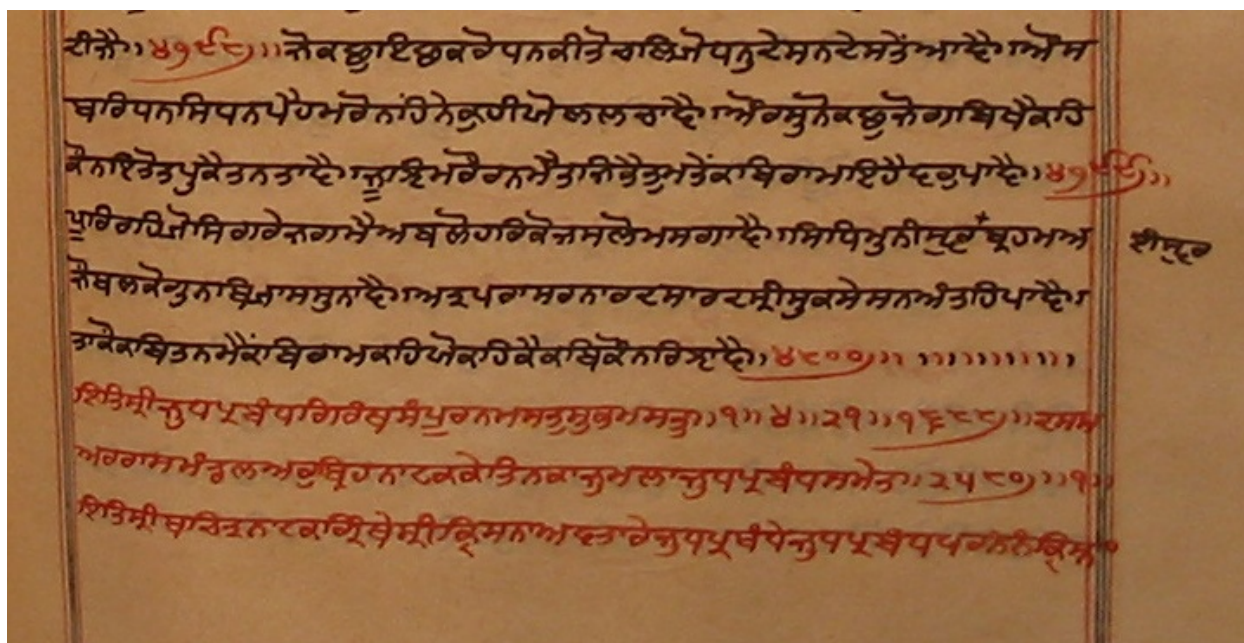 ਦੀਜੈ॥੪੭੯੮॥ਜੋਕਛੁਇਛਕਰੋਧਨਕੀਤੋਚਲਿਯੋਧਨੁਦੇਸਨਦੇਸਤੇਂਆਵੈ॥ਔਸ
ਬਰਿਧਨਸਿਧਨਪੈਹਮਰੋਨਾਂਹਿਨੇਕੁਹੀਯੋਲਲਚਾਵੈ॥ਔਰਸੁਨੋਕਛੁਜੋਗਬਿਖੈਕਹਿ
ਕੌਨਇਤੋਤਪੁਕੈਤਨਤਾਵੈ॥ਜੂਝਿਮਰੌਰਨਮੈਤਜਿਭੈਤੁਮਤੇਂਕਬਿਰਾਮਇਹੈਵਰੁਪਾਵੈ॥੪੭੯੯॥
ਪੂਰਿਰਹਿਯੋਸਿਗਰੇਜਗਮੈਅਬਲੋਹਰਿਕੋਜਸਲੋਅਸਗਾਵੈ॥ਸਿਧਿਮੁਨੀਸ੍ਵਰ+ਬ੍ਰਹਮਅ
ਈਸ੍ਵਰ
ਜੋਬਲਕੋਗੁਨਬਿਯਾਸਸੁਨਾਵੈ॥ਅਤ੍ਰਪਰਾਸਰਨਾਰਦਸਾਰਦਸ੍ਰੀਸੁਕਸੇਸਨਅੰਤਹਿਪਾਵੈ॥
ਤਾਕੋਕਬਿਤਨਮੈਕਬਿਰਾਮਕਹਿਯੋਕਹਿਕੈਕਬਿਕੌਨਰਿਝਾਵੈ॥੪੮੦੦॥
ਇਤਿਸ੍ਰੀਜੁਧਪ੍ਰਬੰਧਗਿਰੰਥਸੰਪੂਰਨਮਸਤੁਸੁਭਮਸਤੁ॥੧॥੪॥੨੧॥੧੬੮੮॥ਦਸਮ
ਅਰਰਾਸਮੰਡਲਅਰੁਬ੍ਰਿਹਨਾਟਕਕੇਤਿਨਕਾਜੁਮਲਾਜੁਧਪ੍ਰਬੰਧਸਮੇਤ॥੨੫੮੦॥੧॥
ਇਤਿਸ੍ਰੀਬਚਿਤ੍ਰਨਾਟਕਗ੍ਰਿੰਥੇਸ੍ਰੀਕ੍ਰਿਸਨਾਅਵਤਾਰੇਜੁਧਪ੍ਰਬੰਧੇਜੁਧਪ੍ਰਬੰਧ